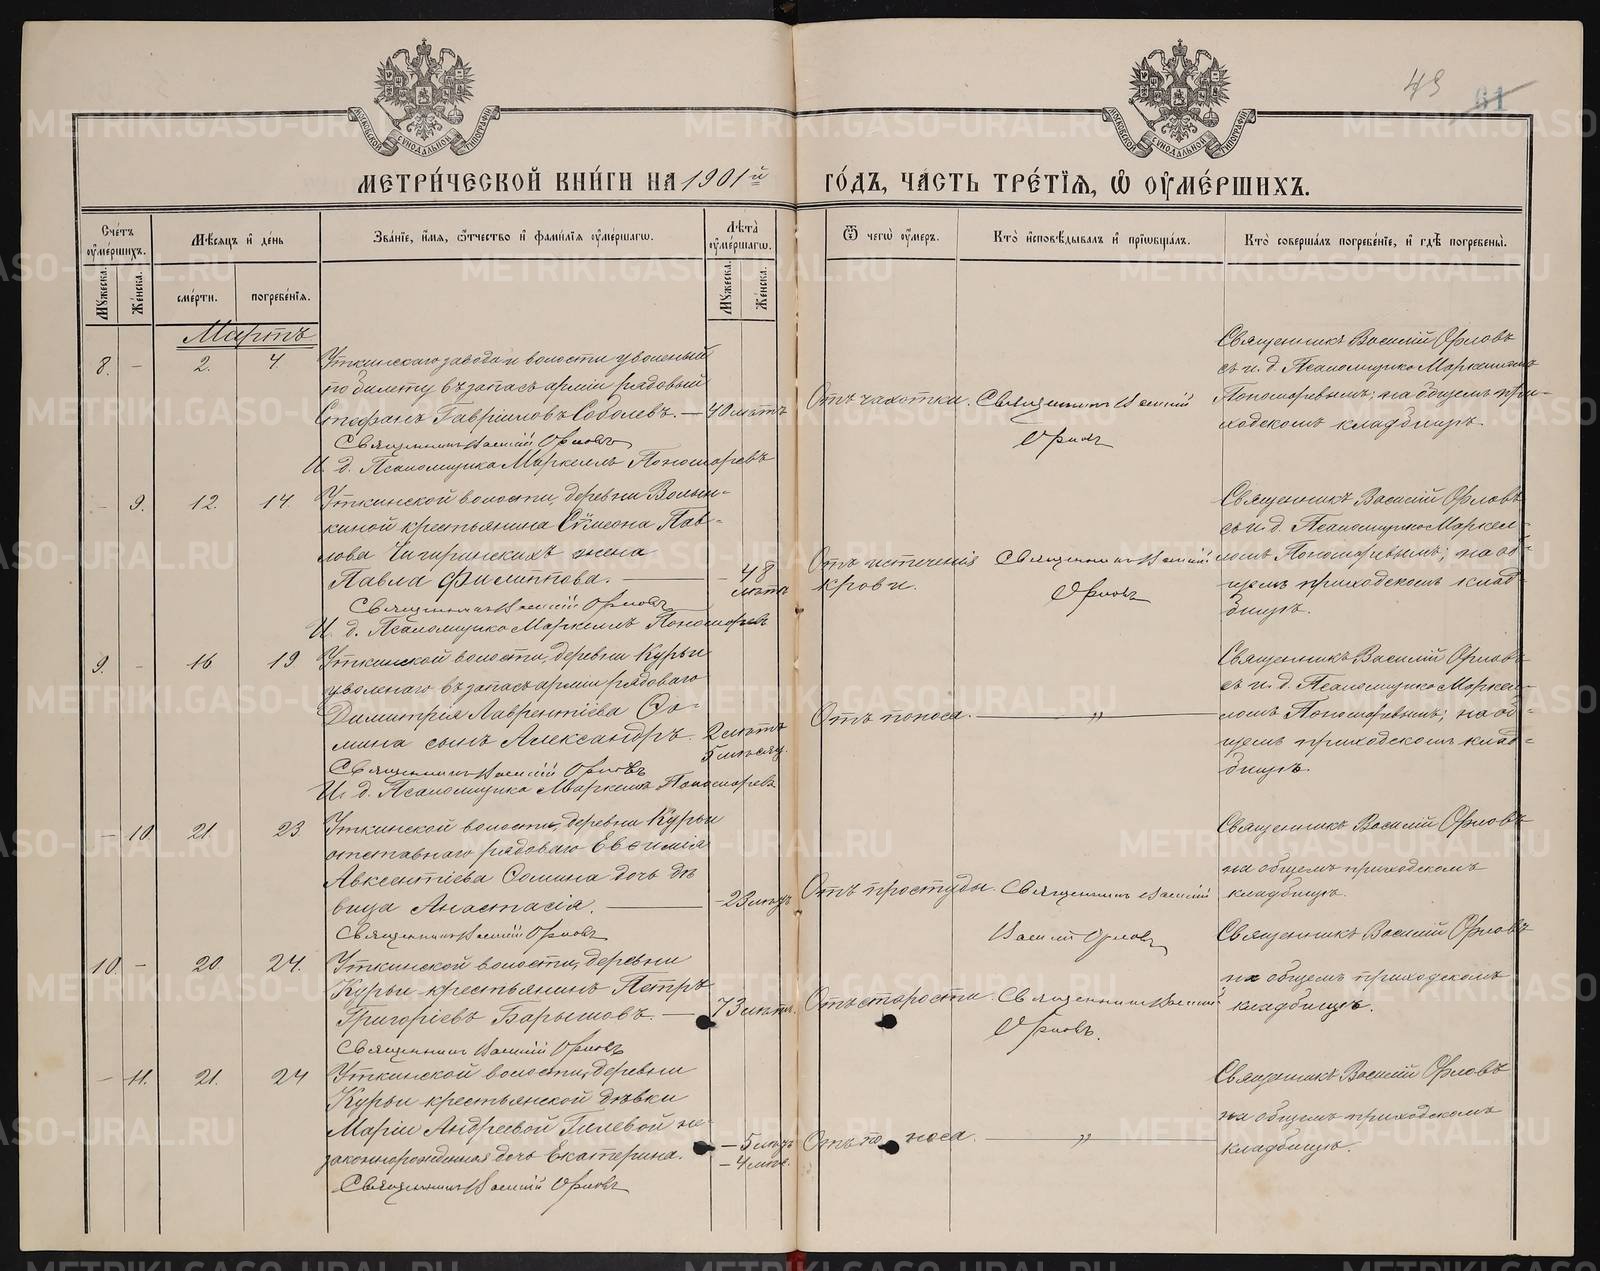 49 61
МОСКОВСКОЙ СѴНОДАЛЬНОЙ ТИПОГРАФІИ
МОСКОВСКОЙ СѴНОДАЛЬНОЙ ТИПОГРАФІИ
МЕТРИ́ЧЕСКОЙ КНИ́ГИ НА 1901й ГО́ДЪ, ЧА́СТЬ ТРЕ́ТІѦ, Ѡ ОУМЕ́РШИХЪ.
Сче́тъ оумершихъ.
Мѣсяцъ и де́нь
Зва́ніе, и́мя, о́тчество и фами́лія оуме́ршагѡ.
Лѣта̀ оуме́ршагѡ.
Ѿ чегѡ̀ оу́меръ.
Кто̀ исповѣ́дывалъ и пріѡбща́лъ.
Кто̀ соверша́лъ погребе́ніе, и гдѣ̀ погребены̀.
Мужеска. Женска.
сме́рти. погребе́нія.
Мужеска. Женска.
Мартъ
8. – 2. 4
Уткинскаго завода и волости уволеный
по билету въ запасъ арміи рядовый
Стефанъ Гавріиловъ Соболевъ. — 40 лѣтъ
Священникъ Василій Орловъ
И. д. Псаломщика Маркеллъ Пономаревъ
Отъ чахотки.
Священникъ Василій
Орловъ
Священникъ Василій Орловъ
съ и. д. Псаломщика Маркелломъ
Пономаревымъ; на общемъ при-
ходскомъ кладбищѣ.
– 9. 12. 14.
Уткинской волости, деревни Волын-
киной крестьянина Сѵмеона Пав-
лова Чигиринскихъ жена
Павла Филиппова. — – 48
лѣтъ
Священникъ Василій Орловъ
И. д. Псаломщика Маркеллъ Пономаревъ
Отъ истеченія
крови.
Священникъ Василій
Орловъ
Священникъ Василій Орловъ
съ и. д. Псаломщика Маркел-
ломъ Пономаревымъ; на об-
щемъ приходскомъ клад-
бищѣ.
9. – 16 19
Уткинской волости, деревни Курьи
уволнаго въ запасъ арміи рядоваго
Димитрія Лаврентіева Ѳо-
мина сынъ Александръ. 2 лѣтъ
5 мѣсяц.
Священникъ Василій Орловъ
И. д. Псаломщика Маркеллъ Пономаревъ
Отъ поноса. — „ —
Священникъ Василій Орловъ
съ и. д. Псаломщика Маркел-
ломъ Пономаревымъ; на об-
щемъ приходскомъ клад-
бищѣ.
– 10 21. 23
Уткинской волости, деревни Курьи
отставнаго рядоваго Евѳимія
Авксентіева Ѳомина дочь дѣ
вица Анастасія. — – 23 лѣтъ
Священникъ Василій Орловъ
Отъ простуды.
Священникъ Василій
Василій Орловъ
Священникъ Василій Орловъ
на общемъ приходскомъ
кладбищѣ.
10. – 20. 24.
Уткинской волости, деревни
Курьи крестьянинъ Петръ
Григоріевъ Барышовъ. — 73 лѣтъ.
Священникъ Василій Орловъ
Отъ старости.
Священникъ Василій
Орловъ.
Священникъ Василій Орловъ
на общемъ приходскомъ
кладбищѣ.
– 11. 21. 24
Уткинской волости, деревни
Курьи крестьянской дѣвки
Маріи Андреевой Гилевой не-
законнорожденная дочь Екатерина. – 5 лѣтъ
– 4 мѣс.
Священникъ Василій Орловъ
Отъ поноса. — „ —
Священникъ Василій Орловъ
на общемъ приходскомъ
кладбищѣ.
METRIKI.GASO-URAL.RU